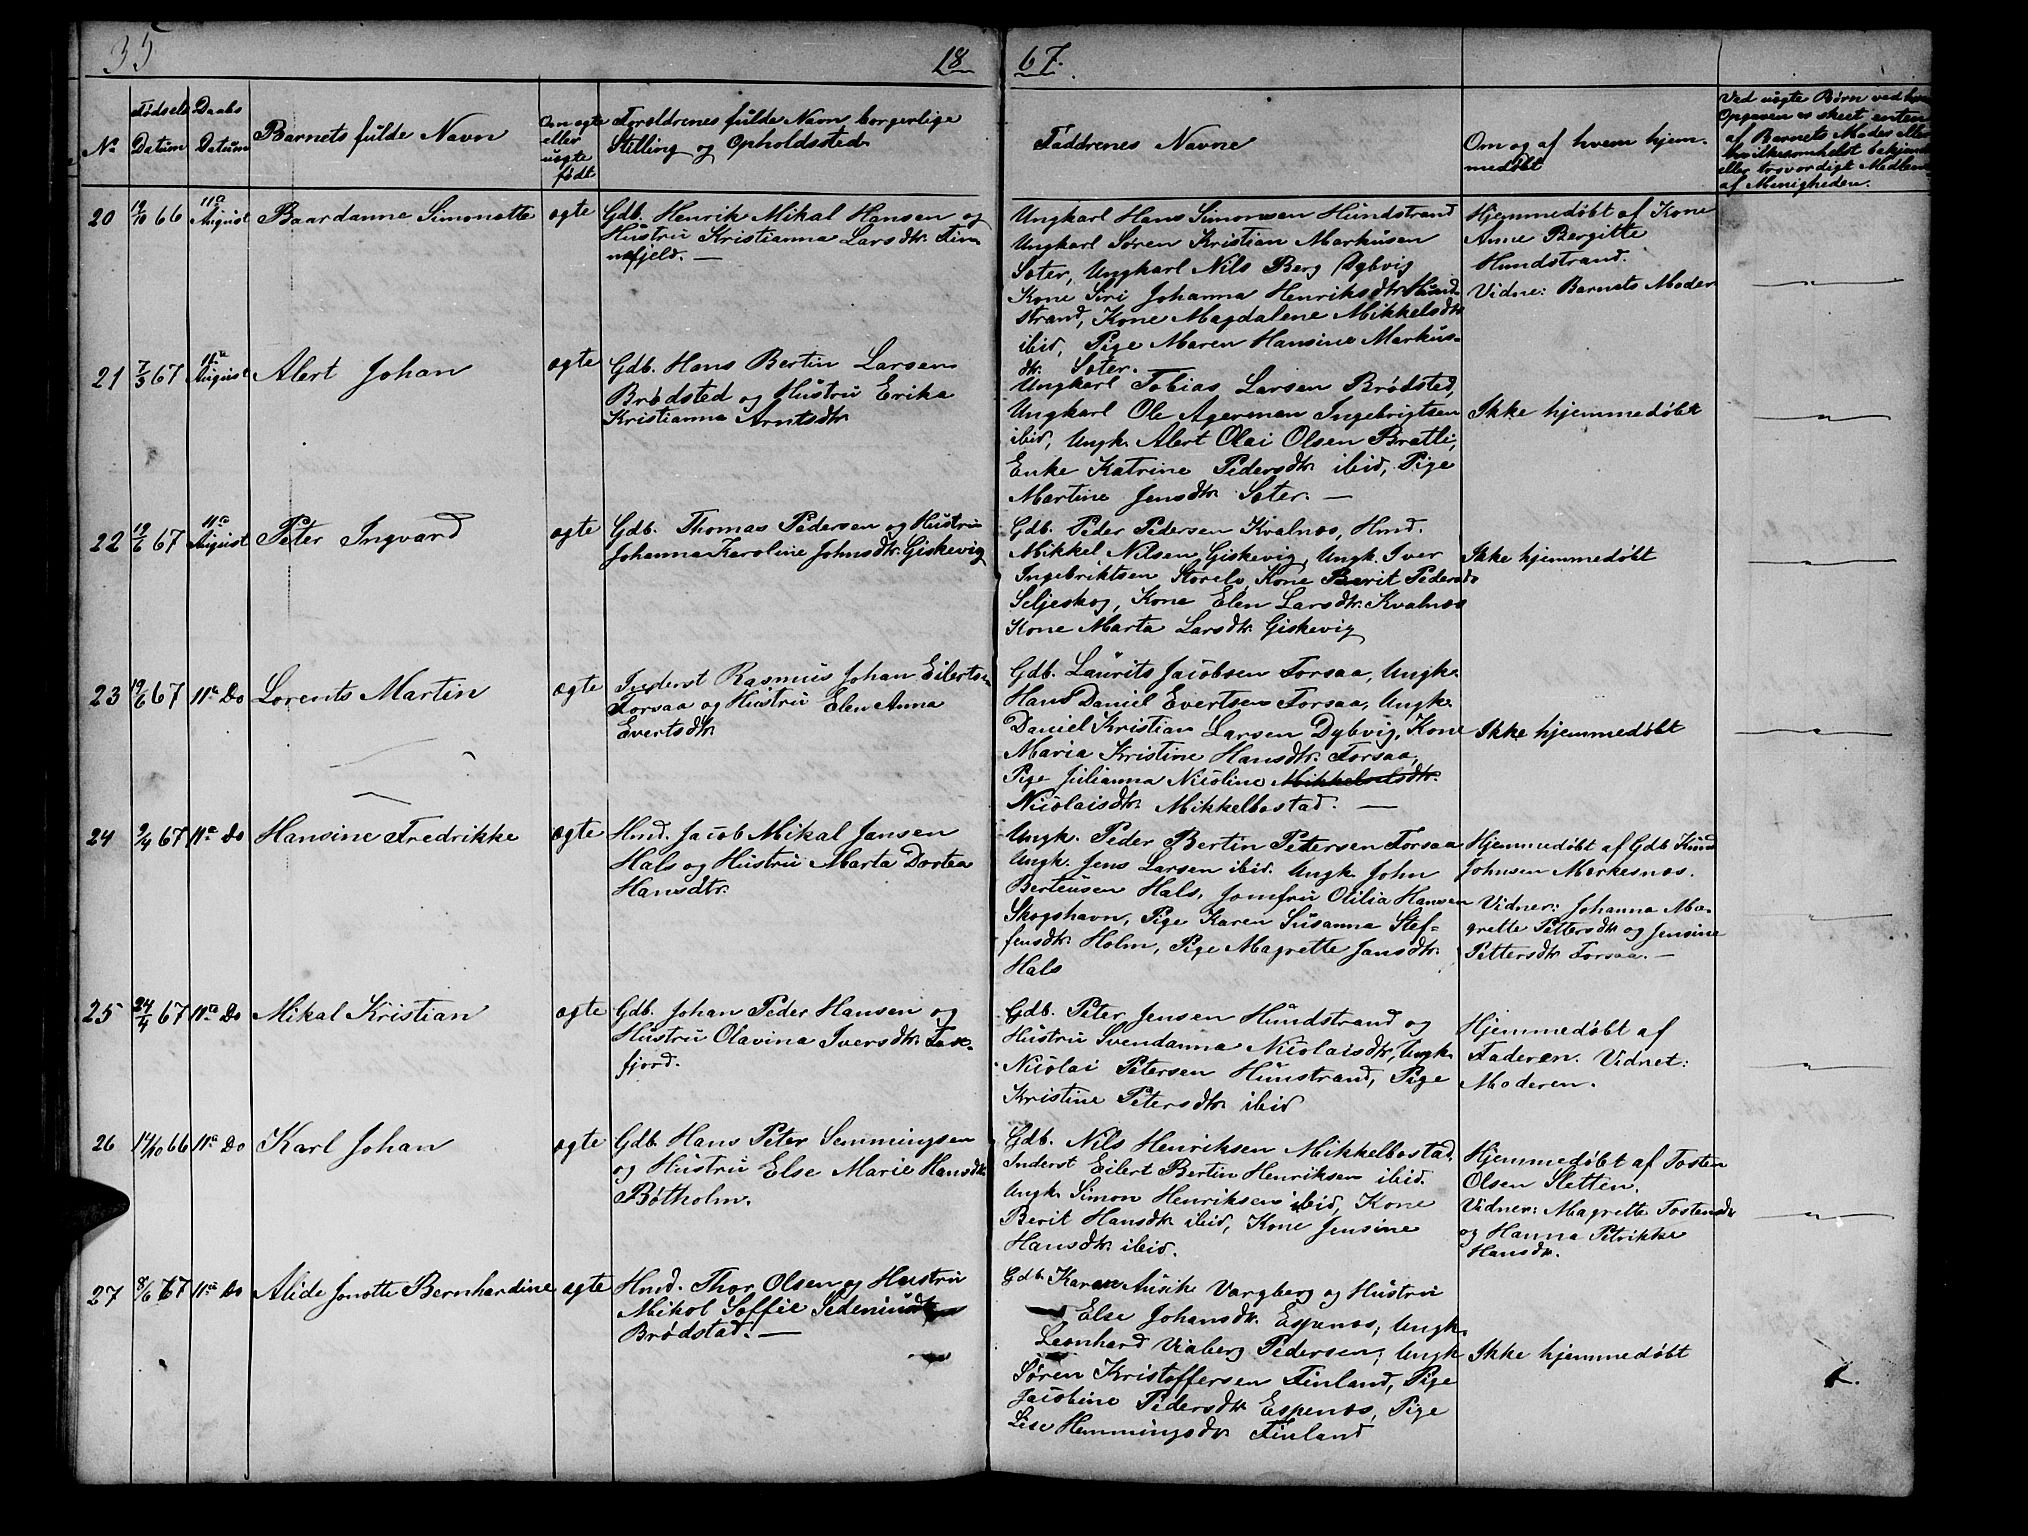 35
1867.
No
Fødsels Datum
Daabs Datum
Barnets fulde Navn
Om ægte eller uægte født
Forældrenes fulde Navn borgerlige Stilling og Opholdssted
Faddrenes Navne
Om og af hvem hjemmedøbt
Ved uægte Børn ved hvem
Opgaven er skeet, enten
af Barnets Moder eller
hvilkesomhelst bekjendt
eller trosværdigt Medlem
af Menigheden.
20 19/10 66 11te August Baardanne Simonette ægte
Gdb. Henrik Mikal Hansen og
Hustru Kristianna Larsdtr. Fin-
nefjeld. —
Ungkarl Hans Simonsen Hundstrand
Ungkarl Søren Kristian Markusen
Sæter, Ungkarl Nils Berg Dybvig
Kone Siri Johanna Henriksdtr. Hund-
strand, Kone Magdalene Mikkelsdtr.
ibid, Pige Maren Hansine Markus-
dtr. Sæter. —
Hjemmedøbt af Kone
Anne Bergitte
Hundstrand.
Vidne: Barnets Moder
21 7/3 67 11te August Alert Johan ægte
Gdb. Hans Bertin Larsen
Brødsted og Hustru Erika
Kristianna Arntsdtr.
Ungkarl Tobias Larsen Brødsted,
Ungkarl Ole Agerman Ingebrigtsen
ibid, Ungk. Alert Olai Olsen Bratli,
Enke Katrine Pedersdtr. ibid, Pige
Martine Jensdtr. Sæter. —
Ikke hjemmedøbt
22 19/6 67 11te August Peter Ingvard ægte
Gdb. Thomas Pedersen og Hustru
Johanna Karoline Johnsdtr. Giskevig
Gdb. Peder Pedersen Kvalnæs, Hmd.
Mikkel Nilsen Giskevig, Ungk. Iver
Ingebriktsen Storelv, Kone Berit Pedersdr
Seljeskog, Kone Elen Larsdtr. Kvalnæs
Kone Marta Larsdtr. Giskevig
Ikke hjemmedøbt
23 19/6 67 11te Do Lorents Martin ægte
Inderst Rasmus Johan Eilertsen
Forsaa og Hustru Elen Anna
Evertsdtr.
Gdb. Laurits Jacobsen Forsaa, Ungk.
Hans Daniel Evertsen Forsaa, Ungk.
Daniel Kristian Larsen Dybvig, Kone
Maria Kristine Hansdtr. Forsaa,
Pige Julianna Nicoline Mikkelsdtr.
Nicolaisdtr. Mikkelbostad. —
Ikke hjemmedøbt
24 9/4 67 11te Do Hansine Fredrikke ægte
Hmd. Jacob Mikal Jansen
Hals og Hustru Marta Dortea
Hansdtr.
Ungk. Peder Bertin Petersen Forsaa
Ungk. Jens Larsen ibid. Ungk. John
Berteusen Hals, Jomfru Otilia Hansen
Skogshavn, Pige Karen Susanna Stef-
fensdtr. Holm, Pige Magrette Jansdtr.
Hals
Hjemmedøbt af Gdb. Knud
Johnsen Merkesnæs.
Vidner: Johanna Ma-
grette Pettersdtr. og Jensine
Pettersdtr. Forsaa. —
25 24/4 67 11te Do Mikal Kristian ægte
Gdb. Johan Peder Hansen og
Hustru Olavina Iversdtr. Faxe-
fjord.
Gdb. Peter Jensen Hundstrand og
Hustru Svendanna Nicolaisdtr, Ungk.
Nicolai Petersen Hunstrand, Pige
Kristine Petersdtr. ibid
Hjemmedøbt af
Faderen. Vidnet:
Moderen.
26 14/10 66 11te Do Karl Johan ægte
Gdb. Hans Peter Semmingsen
og Hustru Else Marie Hansdtr.
Bøtholm.
Gdb. Nils Henriksen Mikkelbostad.
Inderst Eilert Bertin Henriksen ibid.
Ungk. Simon Henriksen ibid, Kone
Berit Hansdtr. ibid, Kone Jensine
Hansdtr. ibid.
Hjemmedøbt af Tosten
Olsen Sletten.
Vidner: Magrette Tostensdr
og Hanna Petrikke
Hansdtr.
27 8/6 67 11te Do Alide Jonette Bernhardine ægte
Hmd. Thor Olsen og Hustru
Mikol Soffie
Brødstad. —
Gdb. Vargberg og Hustru
Else Johansdtr. Espenæs, Ungk.
Leonhard Viaberg Pedersen, Ungk
Søren Kristoffersen Finland, Pige
Jacobine Pedersdtr. Espenæs, Pige
Lise Hemmingsdtr. Finland
Ikke hjemmedøbt